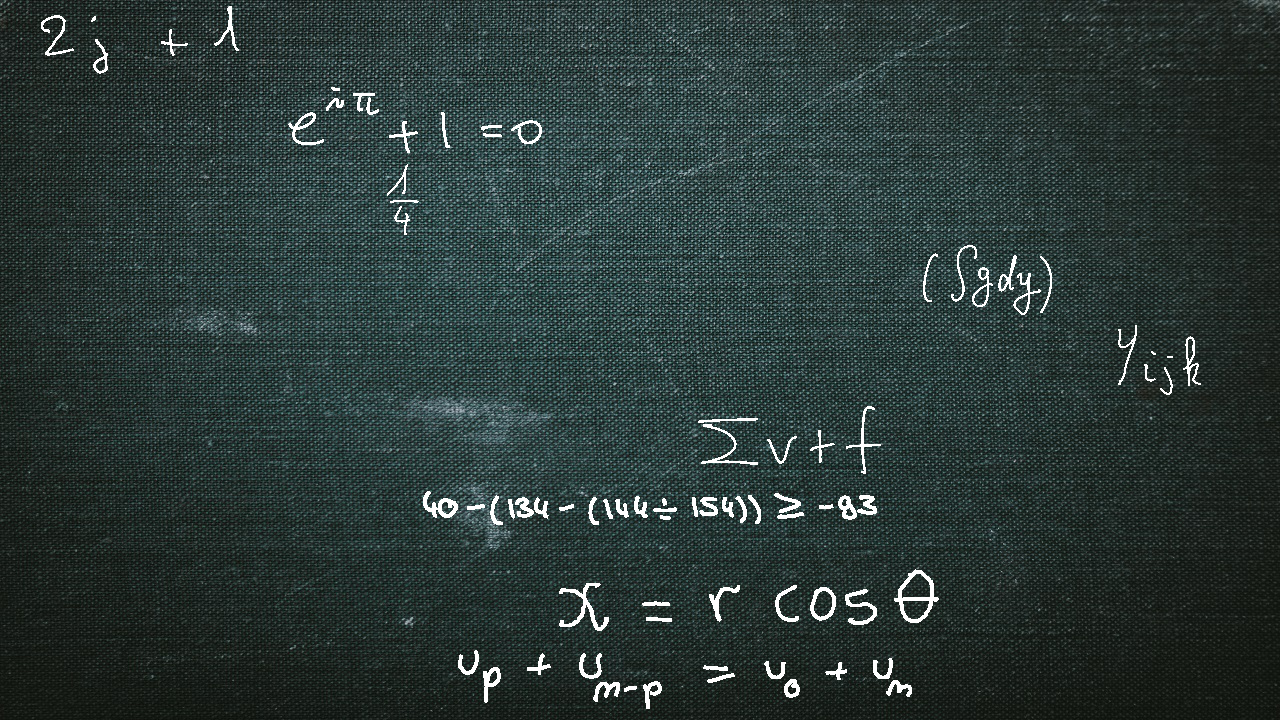 2j + 1
e^{iπ} + 1 = 0
1/4
(∫gdy)
y_{ijk}
∑v+f
40-(134-(144÷154)) ≥ -83
x = r cos θ
u_p + u_{n-p} = u_0 + u_n